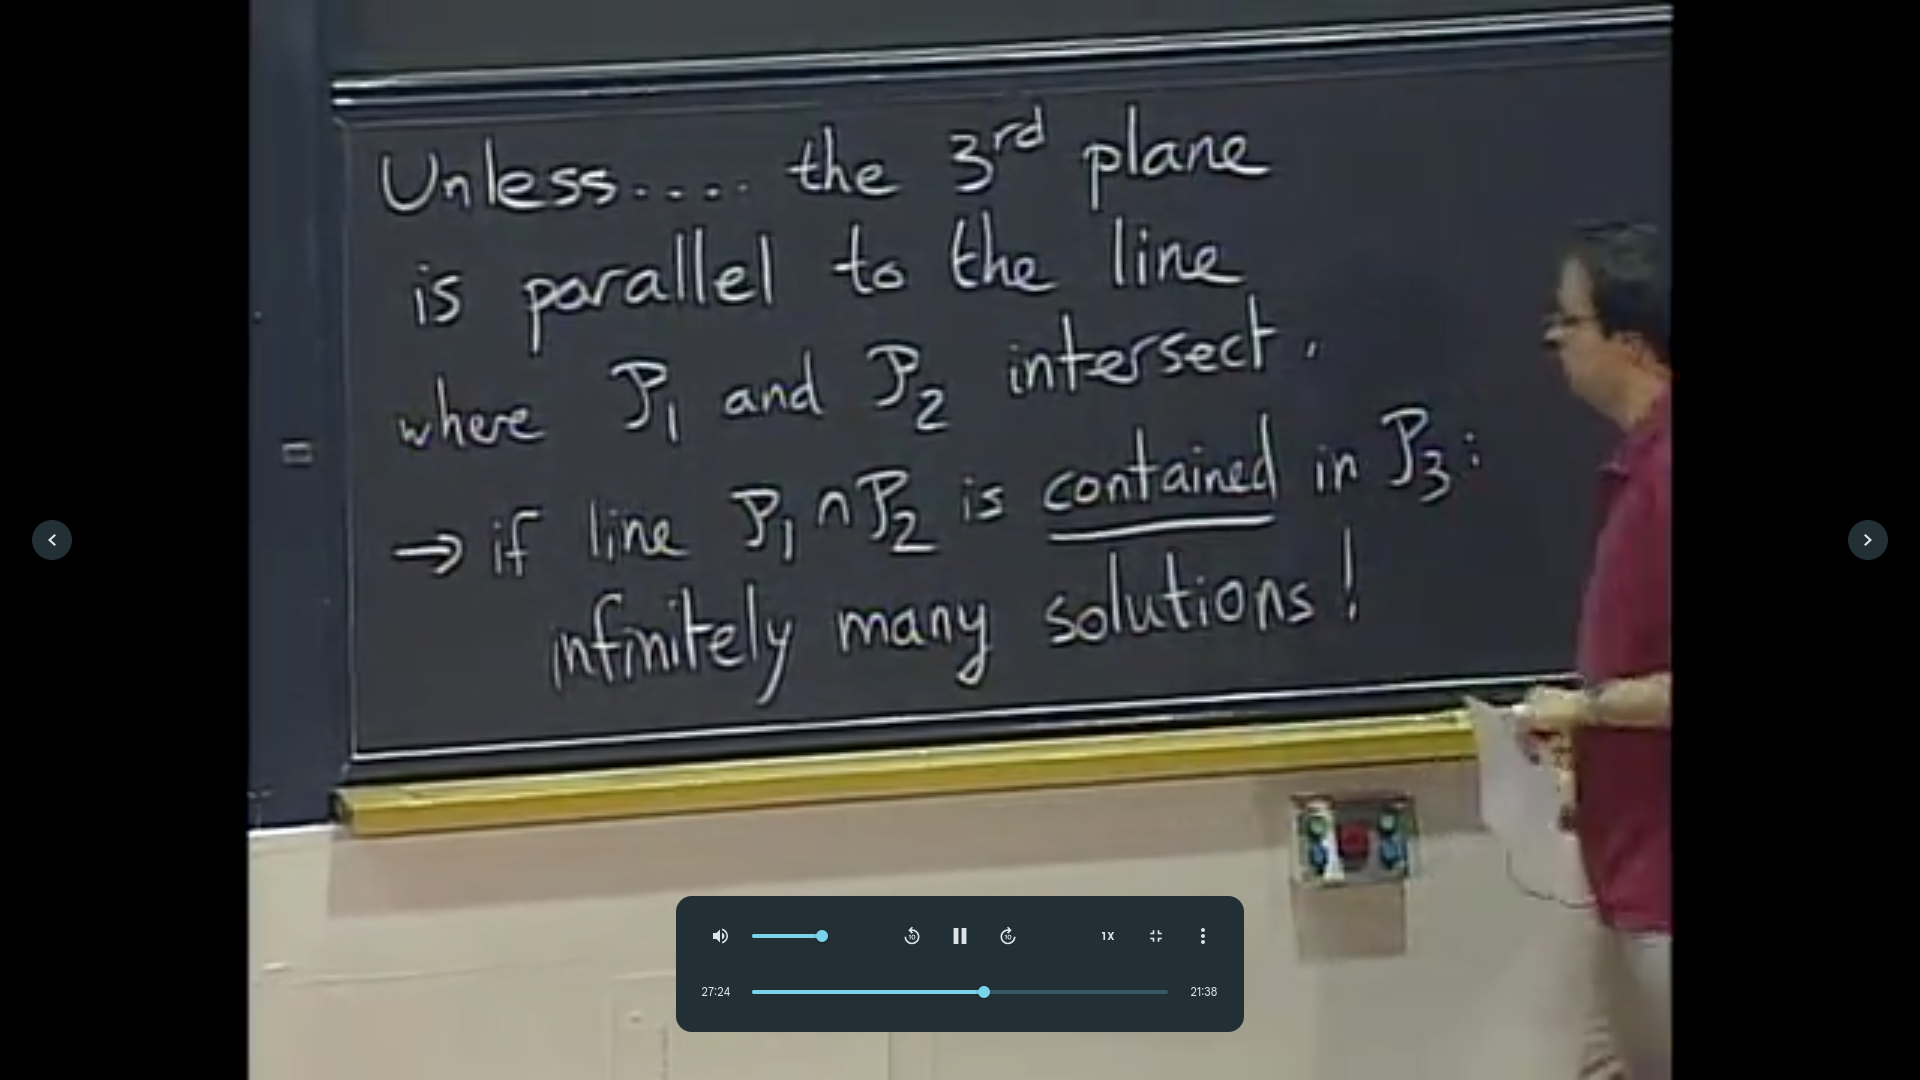 Unless.... the 3rd plane
is parallel to the line
where P1 and P2 intersect.
→ if line P1 ∩ P2 is contained in P3:
infinitely many solutions!
10
10
1X
27:24
21:38